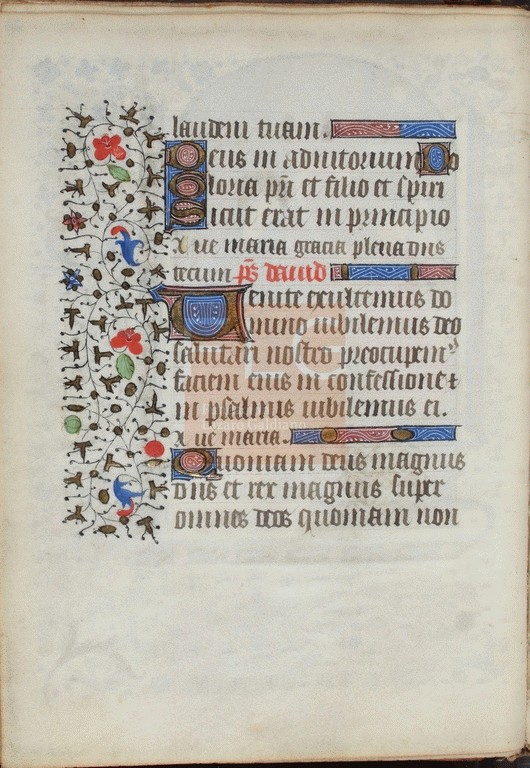 laudem tuam.
Deus in adiutorium do
Gloria pri et filio et spiri
Sicut erat in principio
Aue maria gracia plena dns
tecum ps dauid
Uenite exultemus do
mino iubilemus deo
salutari nostro preocupem9
faciem eius in confessione &
in psalmis iubilemus ei.
Aue maria.
Quoniam deus magnus
dns et rex magnus super
omnes deos quoniam non
Lázaro Galdiano